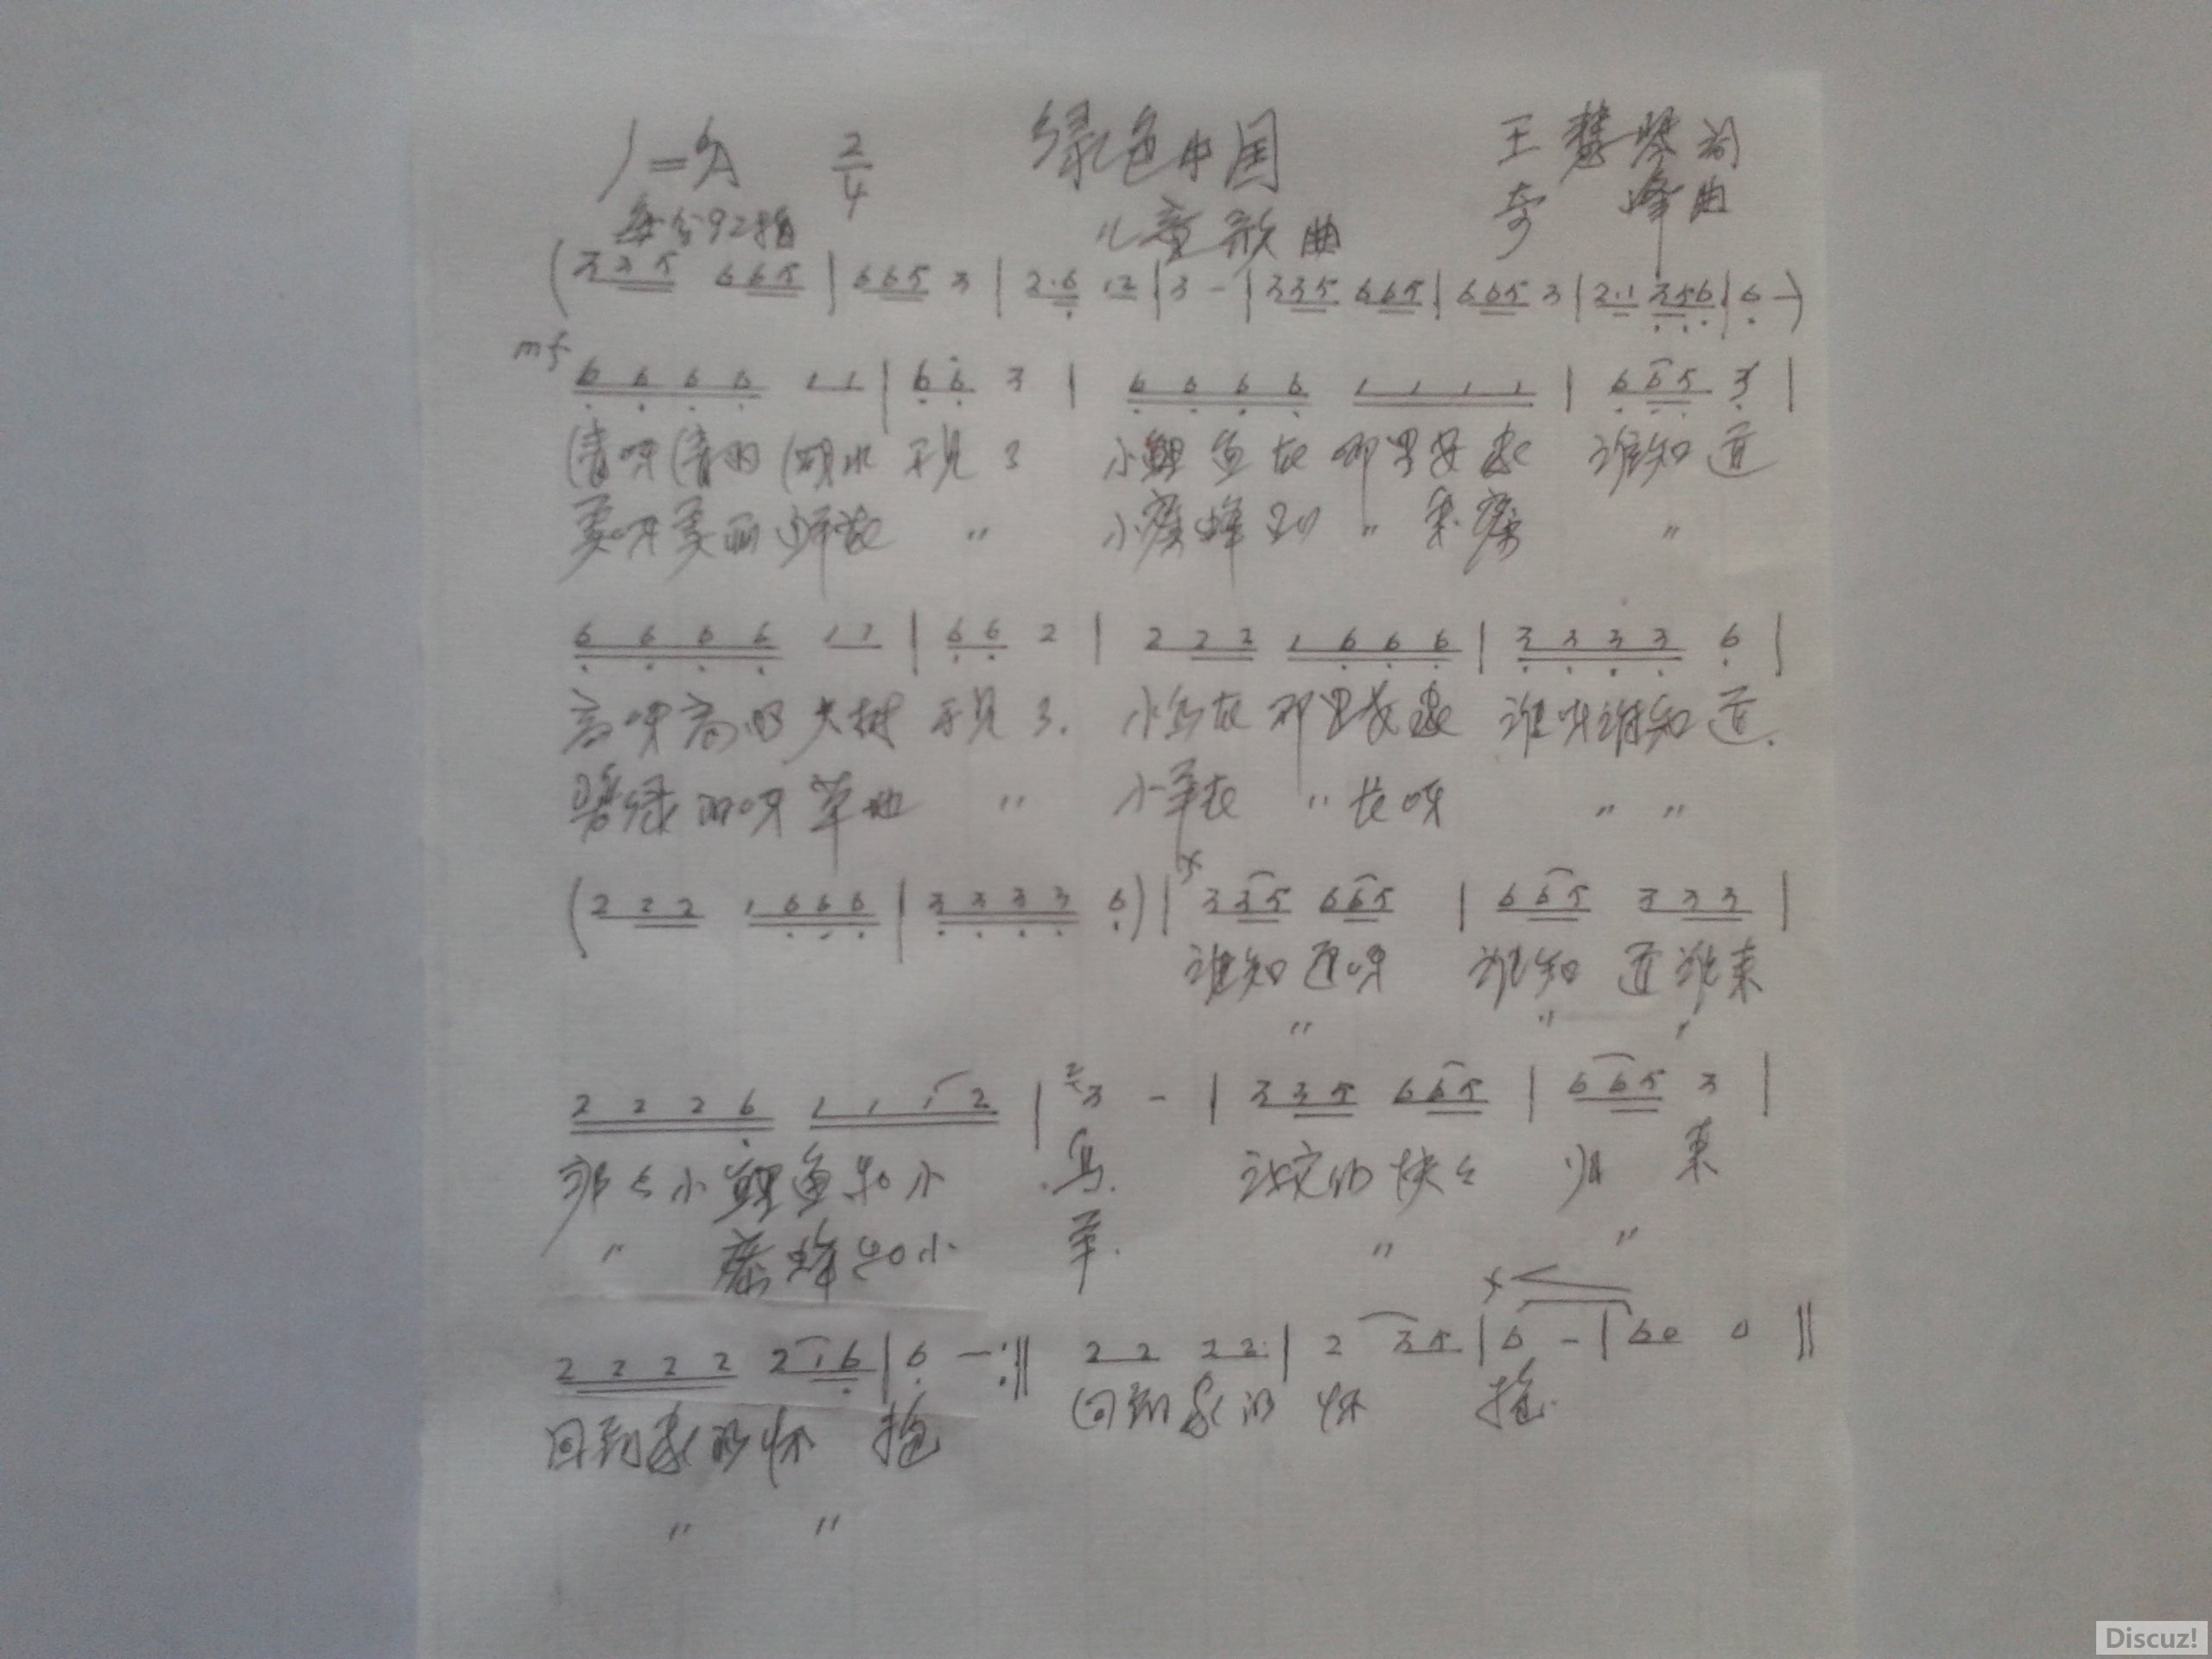 1=A 2/4 绿色中国 王慧琴词
每分92拍 儿童歌曲 奇峰曲
(335 665 | 665 3 | 2·6 12 | 3 - | 335 665 | 665 3 | 2·1 356 | 6 -)
mf
6 6 6 6 1 1 | 6 6 3 | 6 6 6 6 1 1 1 1 | 6 6 5 3 |
清呀清的湖水不见了 小鲤鱼在哪里安家 谁知道
美呀美丽鲜花 〃 小蜜蜂到 〃 采蜜 〃
6 6 6 6 1 1 | 6 6 2 | 2 2 2 1 6 6 6 | 3 3 3 3 6 |
高呀高的大树不见了. 小鸟在那里安家 谁呀谁知道.
碧绿的呀草地 〃 小羊在 〃 长呀 〃 〃
(2 2 2 1 6 6 6 | 3 3 3 3 6) | f 3 3 5 6 6 5 | 6 6 5 3 3 3 |
谁知道呀 谁知道谁来
〃 〃 〃
2 2 2 6 1 1 1 2 | 2 3 - | 3 3 5 6 6 5 | 6 6 5 3 |
那么小鲤鱼和小鸟. 让它们快快归来
〃 蜜蜂和小羊. 〃 〃
f
2 2 2 2 2 1 6 | 6 - :‖ 2 2 2 2 | 2 3 5 | 6 - | 6 0 0 ‖
回到家的怀抱 回到家的怀抱.
〃 〃
Discuz!